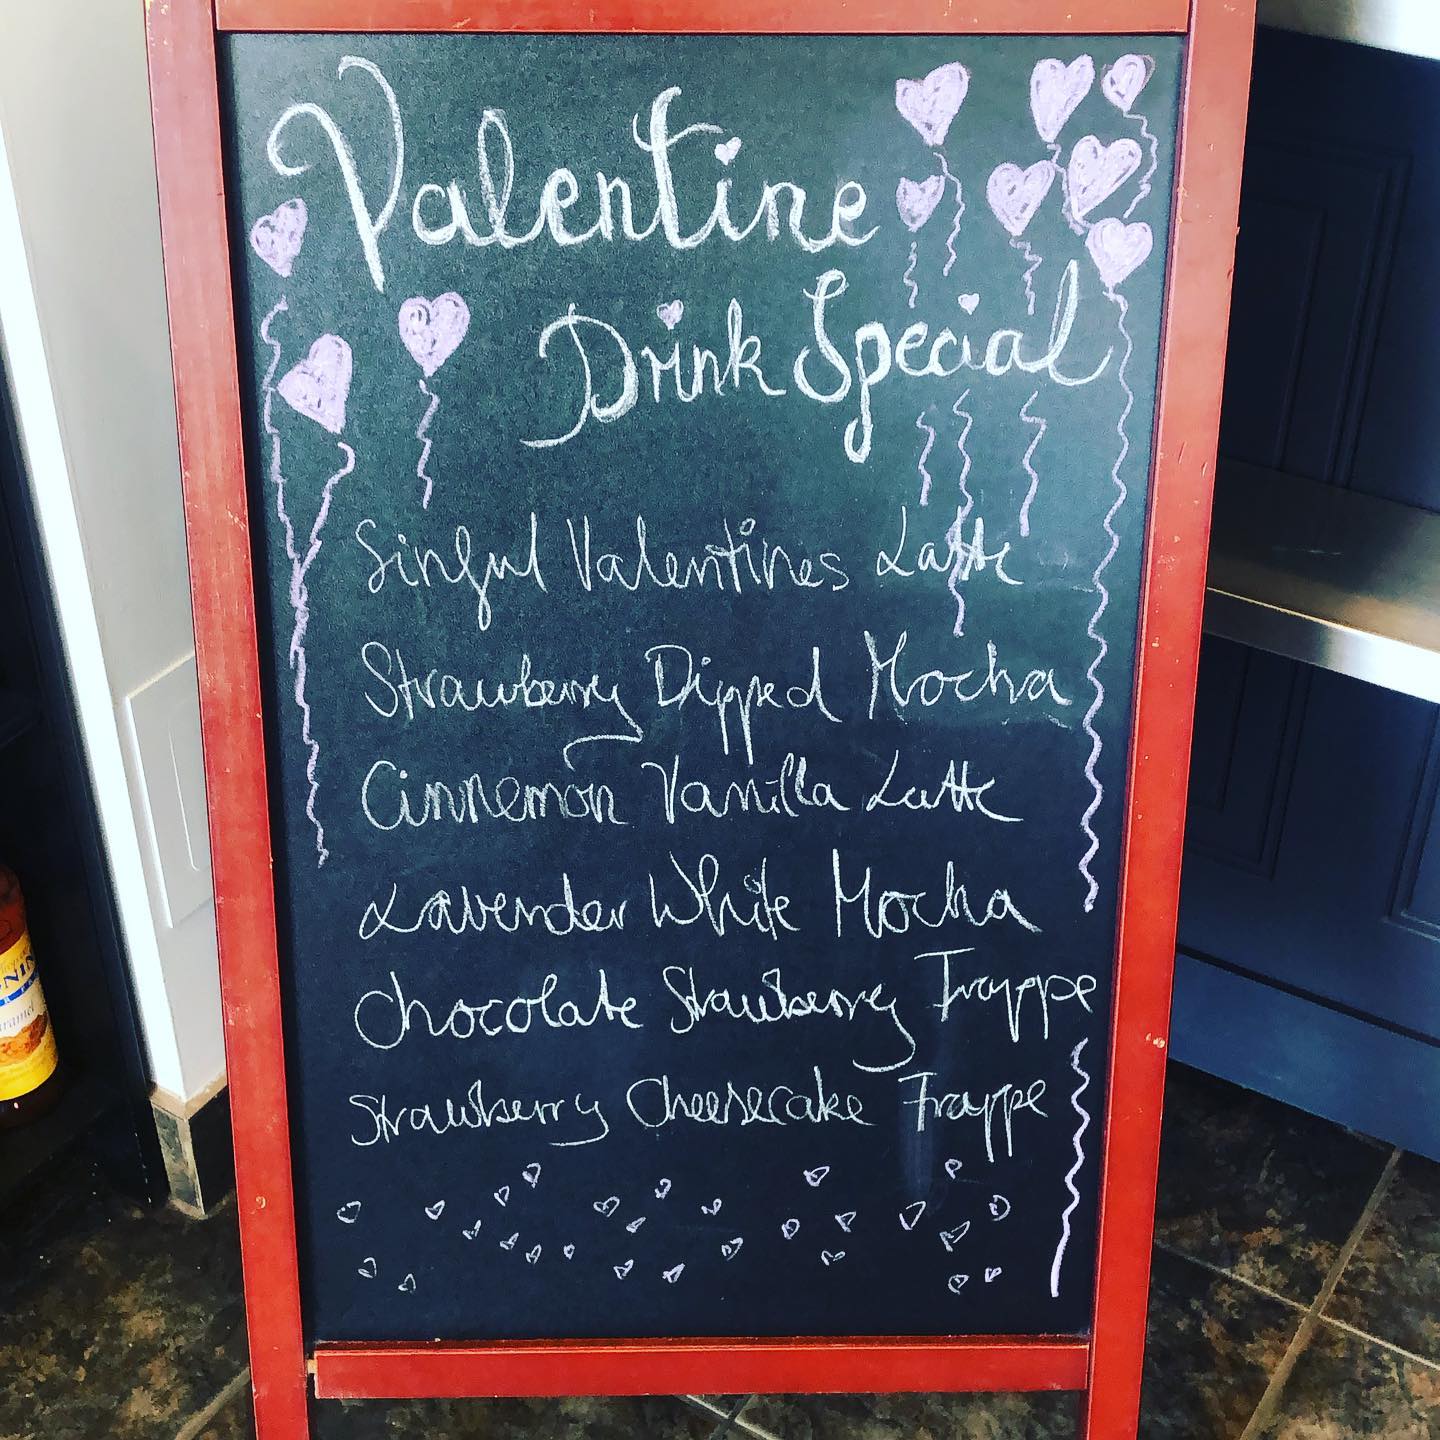 Valentine
Drink Special
Sinful Valentines Latte
Strawberry Dipped Mocha
Cinnemon Vanilla Latte
Lavender White Mocha
Chocolate Strawberry Frappe
Strawberry Cheesecake Frappe